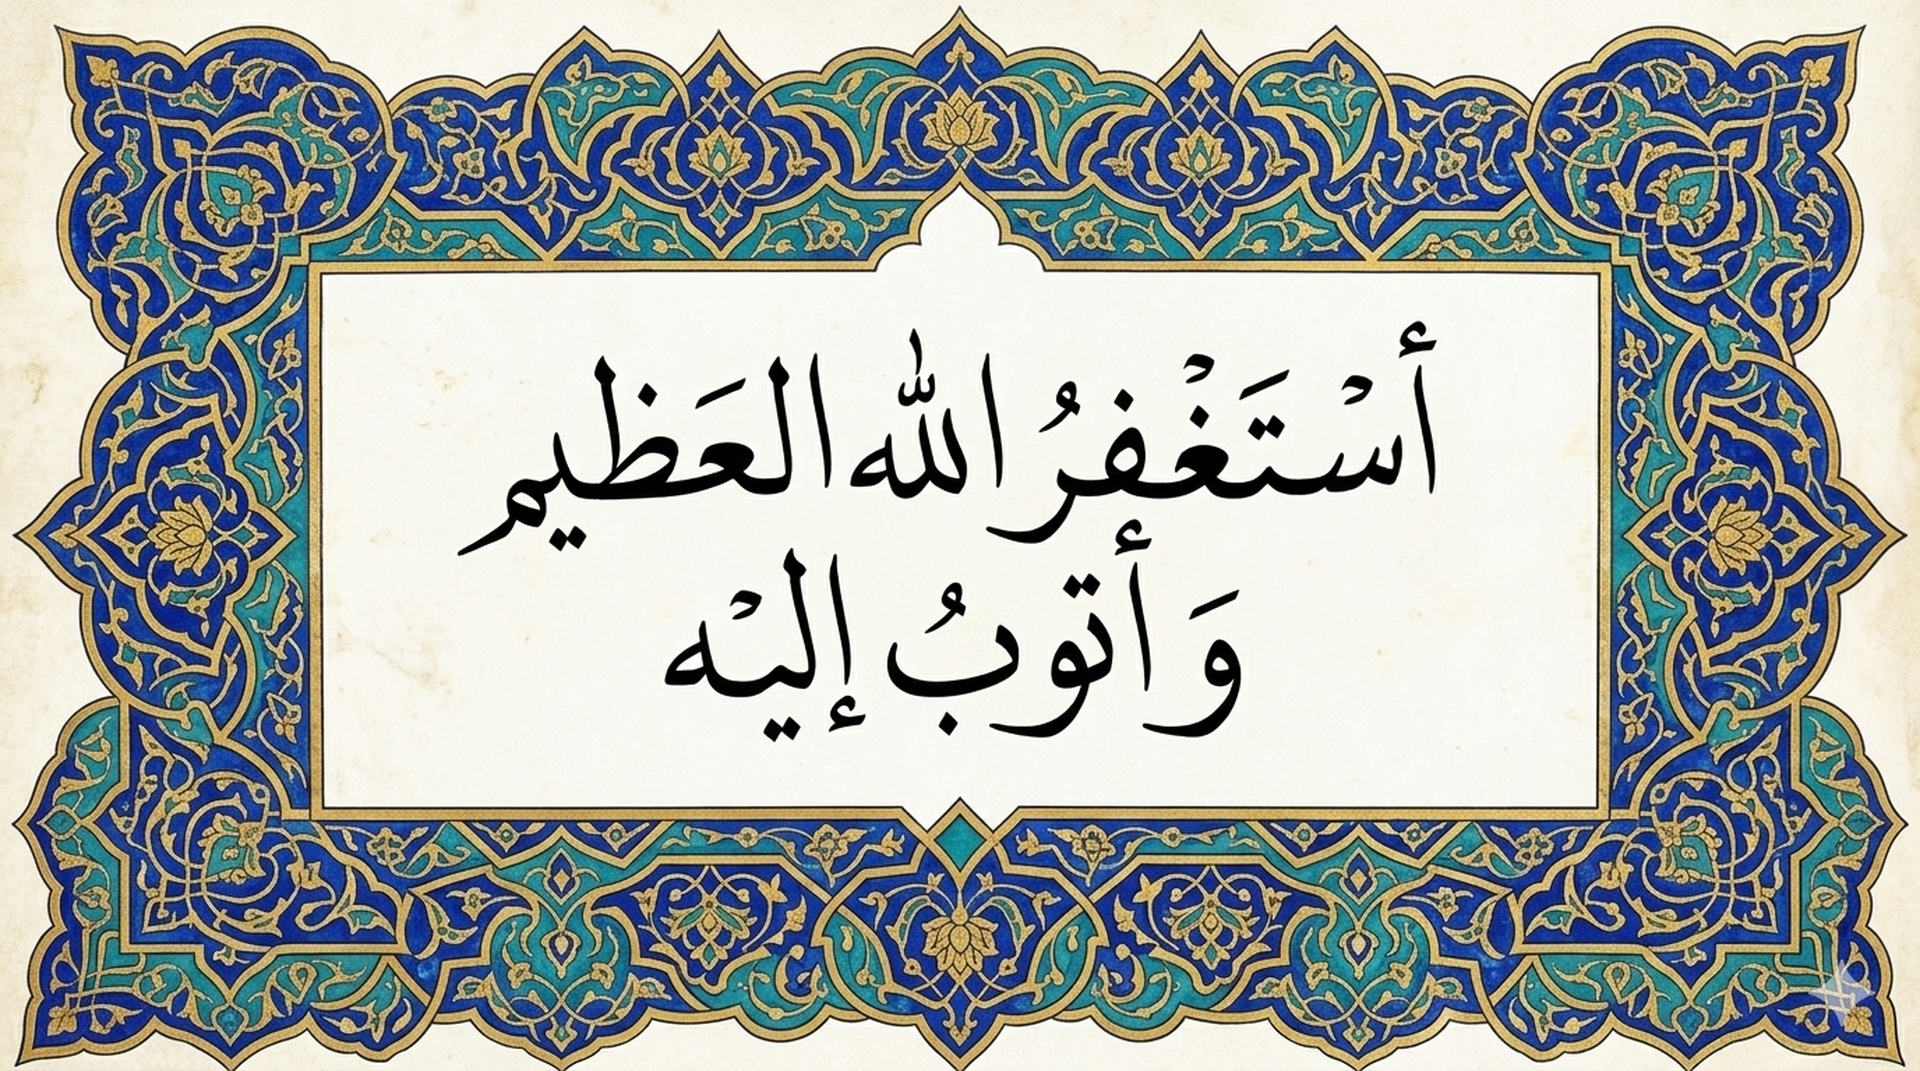 أسْتَغْفرُ الله العَظيم
وَأتوبُ إليْه